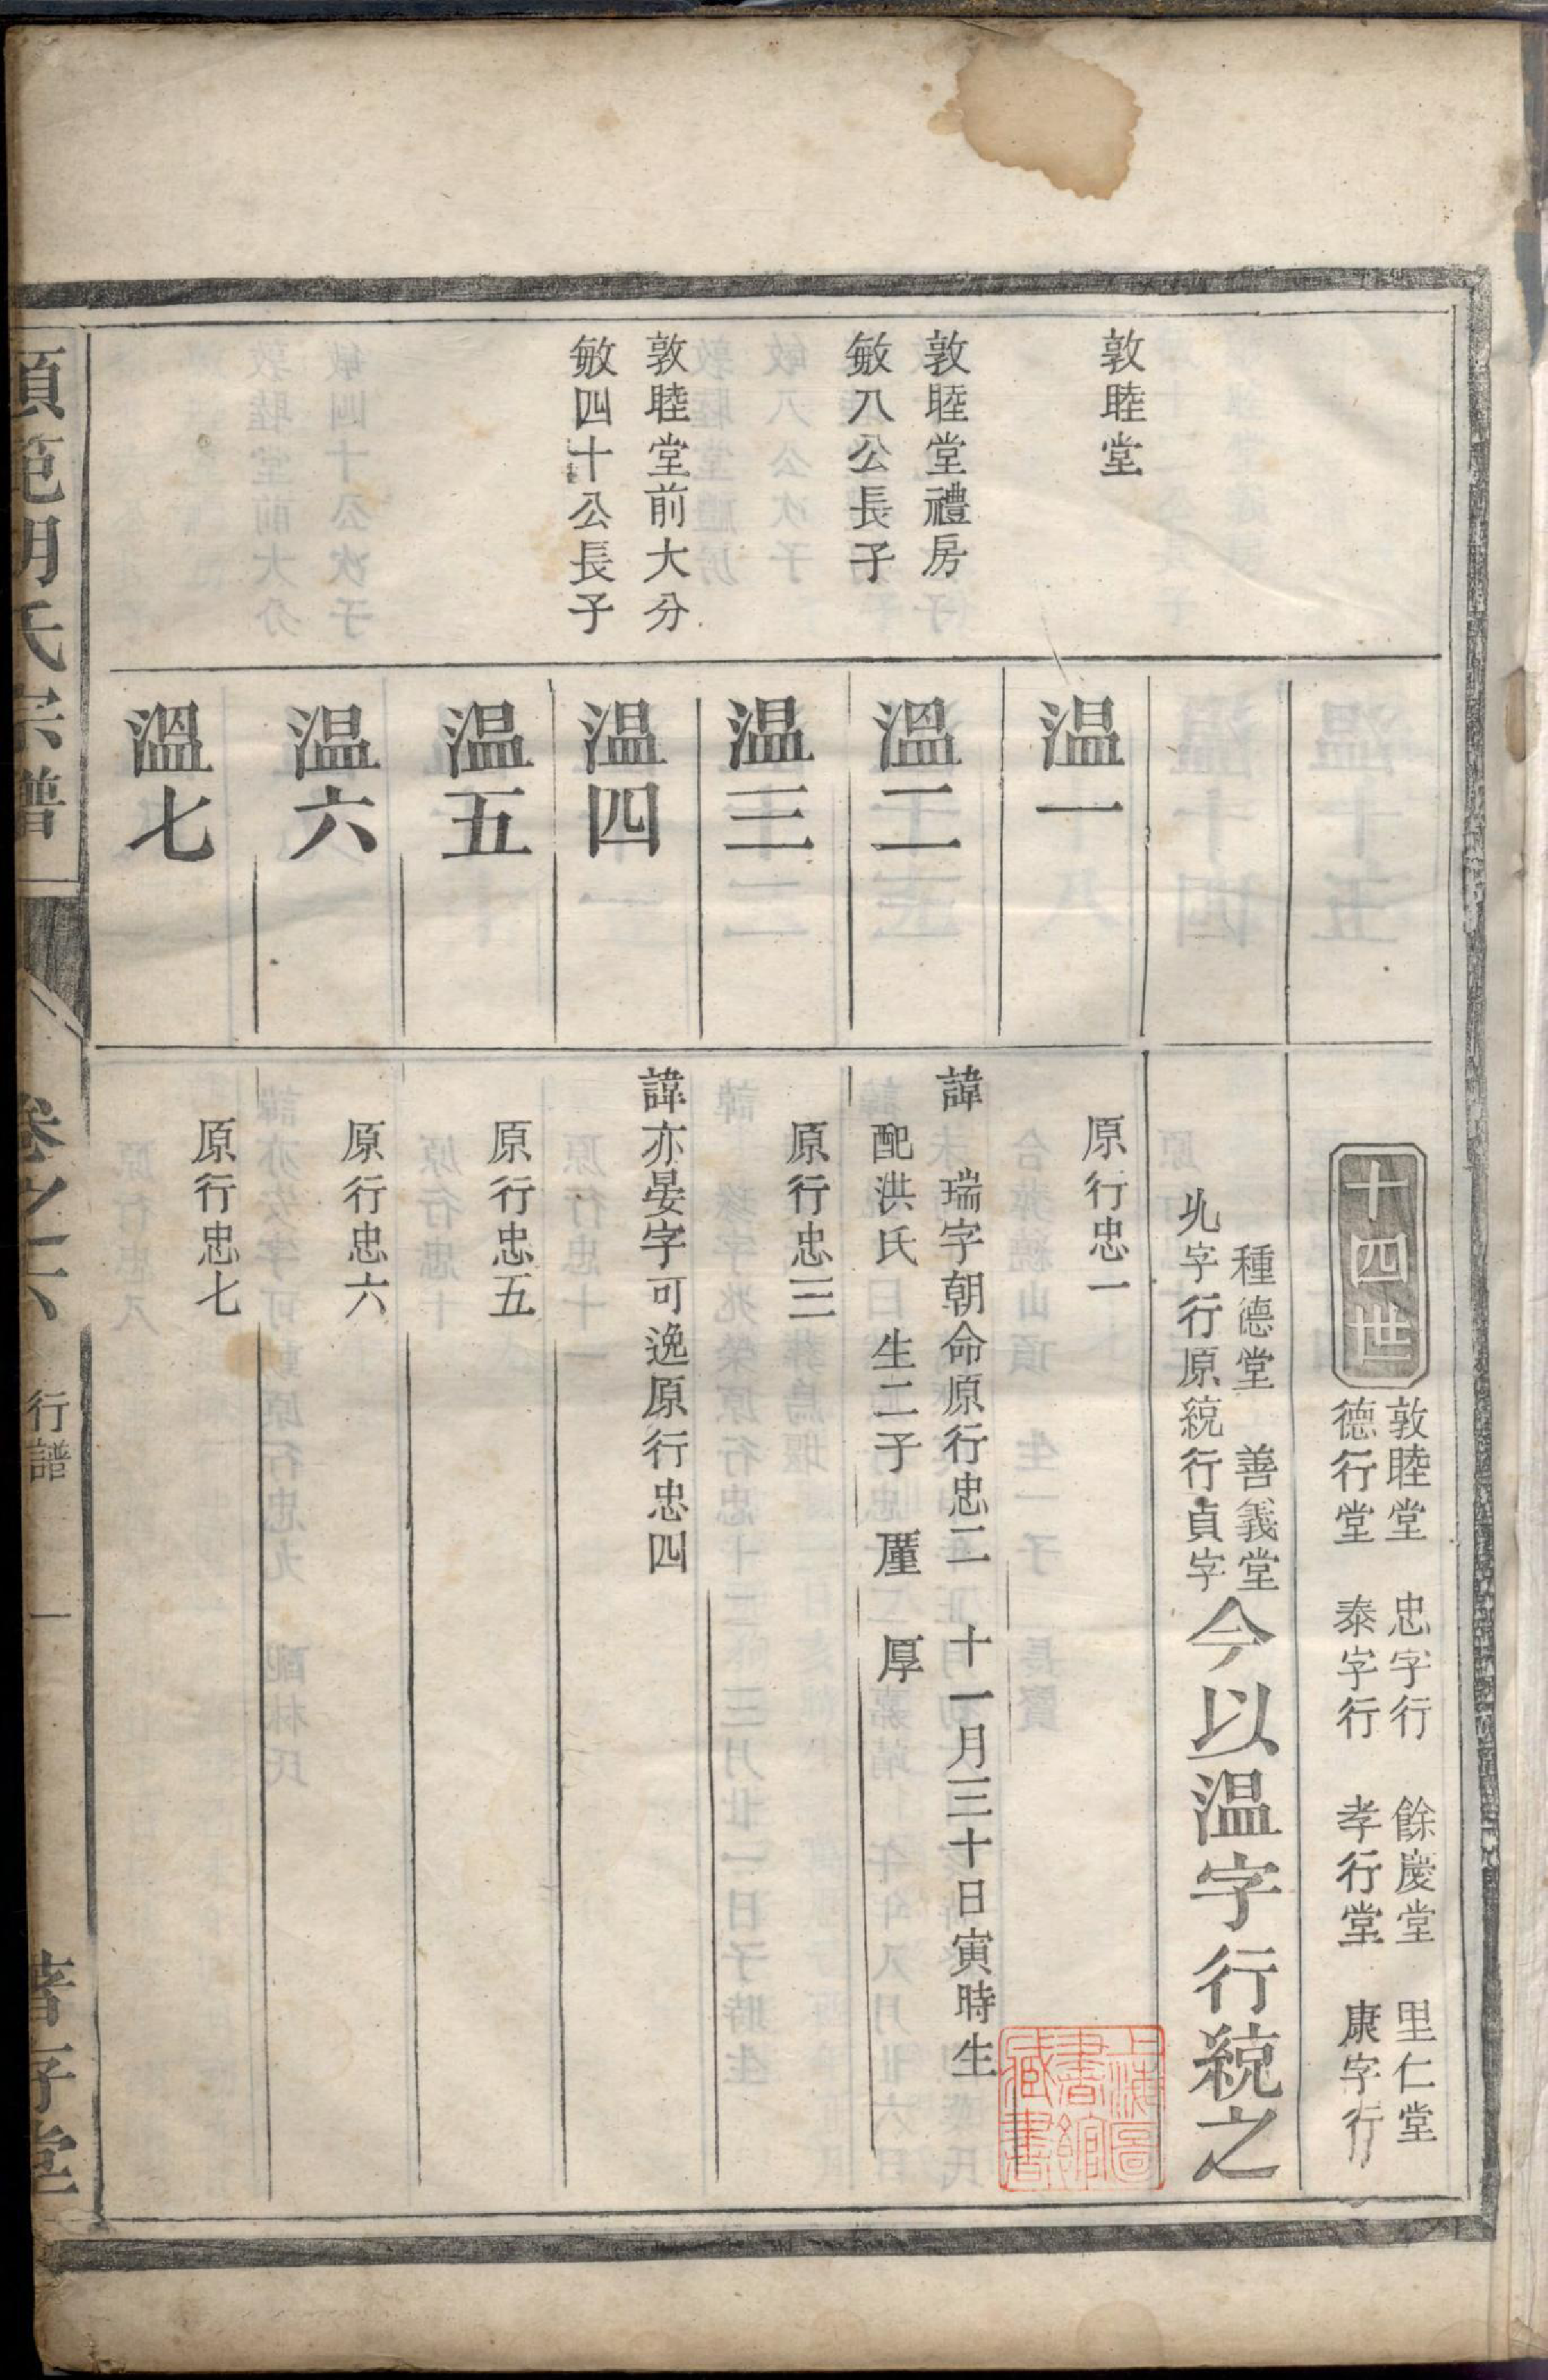 十四世
敦睦堂　忠字行　餘慶堂　里仁堂
德行堂　泰字行　孝行堂　康字行
種德堂　善義堂
字行原統行貞字
今以温字行統之
敦睦堂
温一
原行忠一
敦睦堂禮房
敏八公長子
溫二
諱　瑞字朝命原行忠二　十一月三十日寅時生
配洪氏　生二子　厪　厚
温三
原行忠三
敦睦堂前大分
敏四十公長子
温四
諱亦晏字可逸原行忠四
温五
原行忠五
温六
原行忠六
溫七
原行忠七
胡氏宗譜
卷之六
行譜
一
上海圖書館藏書